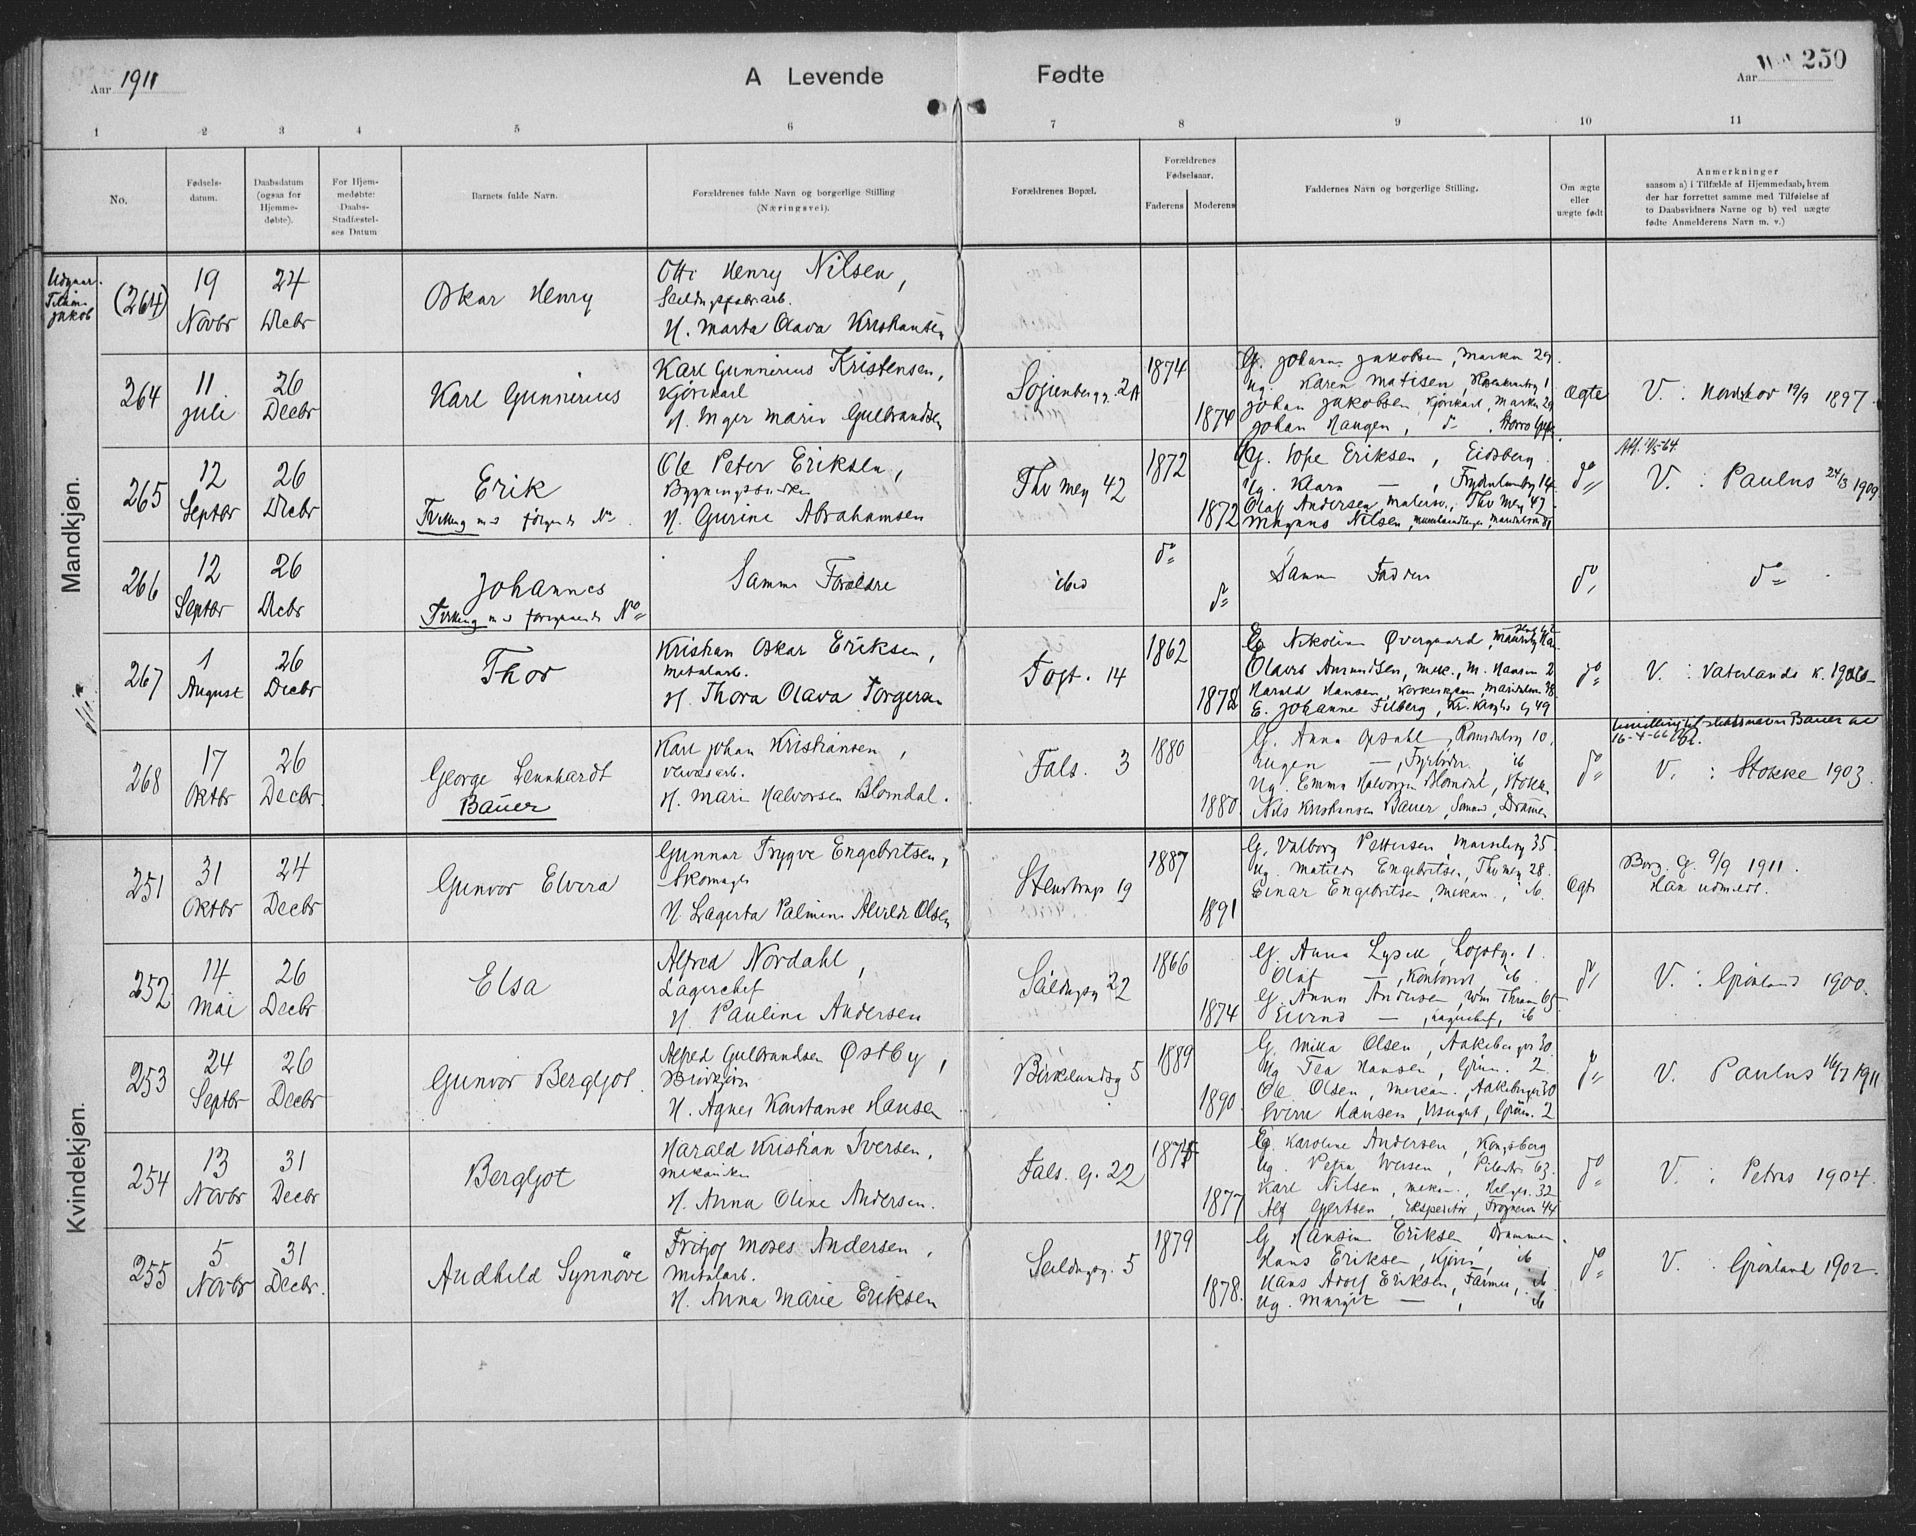 Aar 1911
A Levende Fødte
Aar 250
1 2 3 4 5 6 7 8 9 10 11
No.
Fødsels-
datum.
Daabsdatum
(ogsaa for
Hjemme-
døbte).
For Hjem-
medøbte:
Daabs-
Stadfæstel-
ses Datum
Barnets fulde Navn.
Forældrenes fulde Navn og borgerlige Stilling
(Næringsvei).
Forældrenes Bopæl.
Forældrenes
Fødselsaar.
Faderens Moderens
Faddernes Navn og borgerlige Stilling.
Om ægte
eller
uægte født
Anmerkninger
saasom a) i Tilfælde af Hjemmedaab, hvem
der har forrettet samme med Tilføielse af
to Daabsvidners Navne og b) ved uægte
fødte Anmelderens Navn m. v.)
Mandkjøn.
Udgaar.
Jakob
(264)
19
Novbr
24
Decbr
Oskar Henry
Otto Henry Nilsen,
H. Marta Olava Kristiansen
264
11
Juli
26
Decbr
Karl Gunnerius
Karl Gunnerius Kristensen,
Kjørekarl
H. Inger Marie Gulbrandsen
2A
1874
1874
G. Johanne Jakobsen, Marken 29.
Ug. Karen Matisen,
Johan Jakobsen, Kjørekarl, Marken 29
Johan Haugen, do
Ægte
V. : Nordstrof 19/9 1897.
265
12
Septbr
26
Decbr
Erik
Tvilling med følgende No.
Ole Peter Eriksen,
H. Gurine Abrahamsen
Thv Mey 42
1872
1872
G. Eriksen, Eidsberg
Ug. Klara —,
Olaf Andersen, Thv Mey 42
Magnus Nilsen,
do
V. : Paulus 24/3 1909
266
12
Septbr
26
Decbr
Johannes
Tvilling med foregaaende No
Samme Forældre
ibid
do
do
Samme Faddere
do
do
267
1
August
26
Decbr
Thor
Kristian Oskar Eriksen,
Metalarb.
H. Thora Olava Torgersen
Fogt. 14
1862
1872
E. Nikoline Øvergaard,
Olaves Amundsen, mek., M. Hansen 2
Harald Hansen,
E. Johanne Filberg, 49
do
V. : Vaterlands k.
268
17
Oktbr
26
Decbr
George Lennhardt
Bauer
Karl Johan Kristiansen,
H. Marie Halvorsen Blomdal.
Fals. 3
1880
1880
G. Anna Opsahl, 10.
Eugen —, Fyrbøder, ib
Ug. Emma Halvorsen Blomdal, Stokke
Nils Kristiansen Bauer, Drammen
do
Bauer
V. : Stokke 1903.
Kvindekjøn.
251
31
Oktbr
24
Decbr
Gunvor Elvira
Gunnar Trygve Engebritsen,
Skomager
H. Lagerta Palmine Alvilde Olsen
Stenstrup 19
1887
1891
G. Valborg Pettersen, 35
Ug. Matilde Engebritsen, Thv Mey 28.
Einar Engebritsen, Mekan., ib.
Ægte
Borg. G. 9/9 1911.
Han udmeldt.
252
14
Mai
26
Decbr
Elsa
Alfred Nordahl,
Lagerchef
H. Pauline Andersen
Seildugsg 22
1866
1874
G. Anna Lysell, 1
Olaf —, Kontorist, ib
G. Anna Andersen, 65
Eivind —, Lagerchef, ib
do
V. : Grønland 1900.
253
24
Septbr
26
Decbr
Gunvor Bergljot.
Alfred Gulbrandsen Østby,
H. Agnes Konstanse Hansen
Birkelundsg 5
1889
1890.
G. Milla Olsen, Aakeberg 30.
Ug Tea Hansen, Grün. 2.
Ole Olsen, Mekan., Aakebergv 30
Sverre Hansen, Visergut, Grün. 2
do
V. Paulus 16/7 1911
254
13
Novbr
31
Decbr
Bergljot
Harald Kristian Iversen,
Mekaniker
H. Anna Oline Andersen.
Fals. G. 22
1877
G. Karoline Andersen, Kongsberg
Ug. Petra Iversen, Pilestr. 63.
Karl Nilsen, Mekan., Helges. 32
Alf Gjertsen, Ekspeditør, Frognervn 44
do
V. : Petrus 1904.
255
5
Novbr
31
Decbr.
Audhild Synnöve
Fritjof Moses Andersen,
Metalarb.
H. Anna Marie Eriksen
Seildugsg. 5
1879
1878.
G. Hansine Eriksen, Drammen.
Hans Eriksen, ib
Hans Adolf Eriksen, Farmer, ib
Ug. Margit —, ib
do
V. : Grønland 1902.